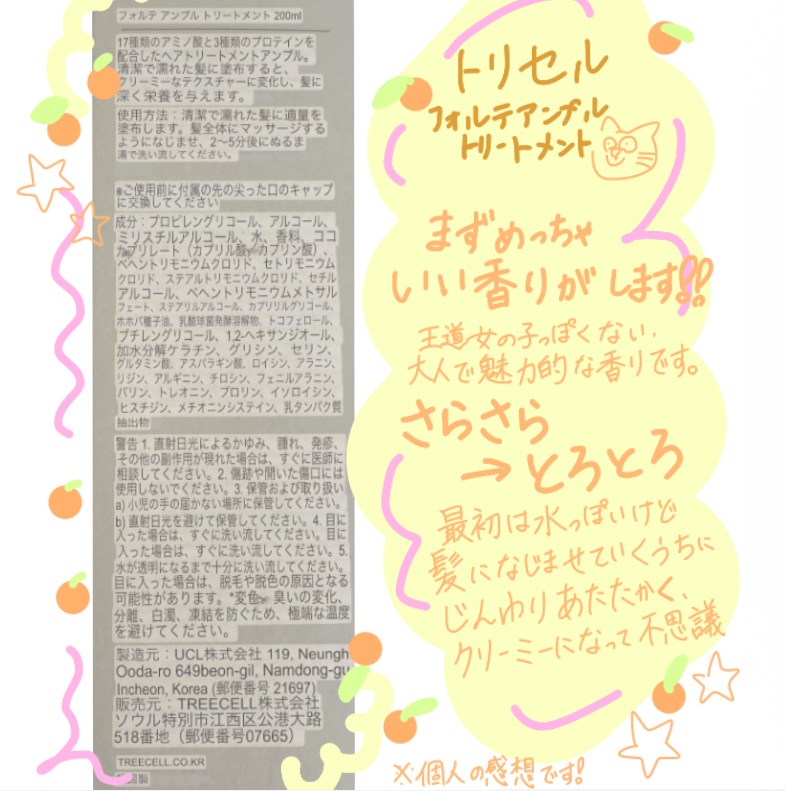 フォルテ アンプル トリートメント 200ml
17種類のアミノ酸と3種類のプロテインを
配合したヘアトリートメントアンプル。
清潔で濡れた髪に塗布すると、
クリーミーなテクスチャーに変化し、髪に
深く栄養を与えます。
使用方法：清潔で濡れた髪に適量を
塗布します。髪全体にマッサージする
ようになじませ、2～5分後にぬるま
湯で洗い流してください。
※ご使用前に付属の先の尖った口のキャップ
に交換してください
成分：プロピレングリコール、アルコール、
ミリスチルアルコール、水、香料、ココ
カプリレート（カプリル酸／カプリン酸）、
ベヘントリモニウムクロリド、セトリモニウム
クロリド、ステアルトリモニウムクロリド、セチル
アルコール、ベヘントリモニウムメトサル
フェート、ステアリルアルコール、カプリリルグリコール、
ホホバ種子油、乳酸球菌発酵溶解物、トコフェロール、
ブチレングリコール、1,2-ヘキサンジオール、
加水分解ケラチン、グリシン、セリン、
グルタミン酸、アスパラギン酸、ロイシン、アラニン、
リジン、アルギニン、チロシン、フェニルアラニン、
バリン、トレオニン、プロリン、イソロイシン、
ヒスチジン、メチオニンシステイン、乳タンパク質
抽出物
警告 1. 直射日光によるかゆみ、腫れ、発疹、
その他の副作用が現れた場合は、すぐに医師に
相談してください。2. 傷跡や開いた傷口には
使用しないでください。3. 保管および取り扱い
a) 小児の手の届かない場所に保管してください。
b) 直射日光を避けて保管してください。4. 目に
入った場合は、すぐに洗い流してください。目に
入った場合は、すぐに洗い流してください。5.
水が透明になるまで十分に洗い流してください。
目に入った場合は、脱毛や脱色の原因となる
可能性があります。*変色、臭いの変化、
分離、白濁、凍結を防ぐため、極端な温度
を避けてください。
製造元：UCL株式会社 119, Neungh
Ooda-ro 649beon-gil, Namdong-gu
Incheon, Korea (郵便番号 21697)
販売元：TREECELL株式会社
ソウル特別市江西区公港大路
518番地（郵便番号07665）
TREECELL.CO.KR
国製
トリセル
フォルテアンプル
トリートメント
まずめっちゃ
いい香りがします!!
王道女の子っぽくない、
大人で魅力的な香りです。
さらさら
→とろとろ
最初は水っぽいけど
髪になじませていくうちに
じんゆりあたたかく、
クリーミーになって不思議
※個人の感想です!